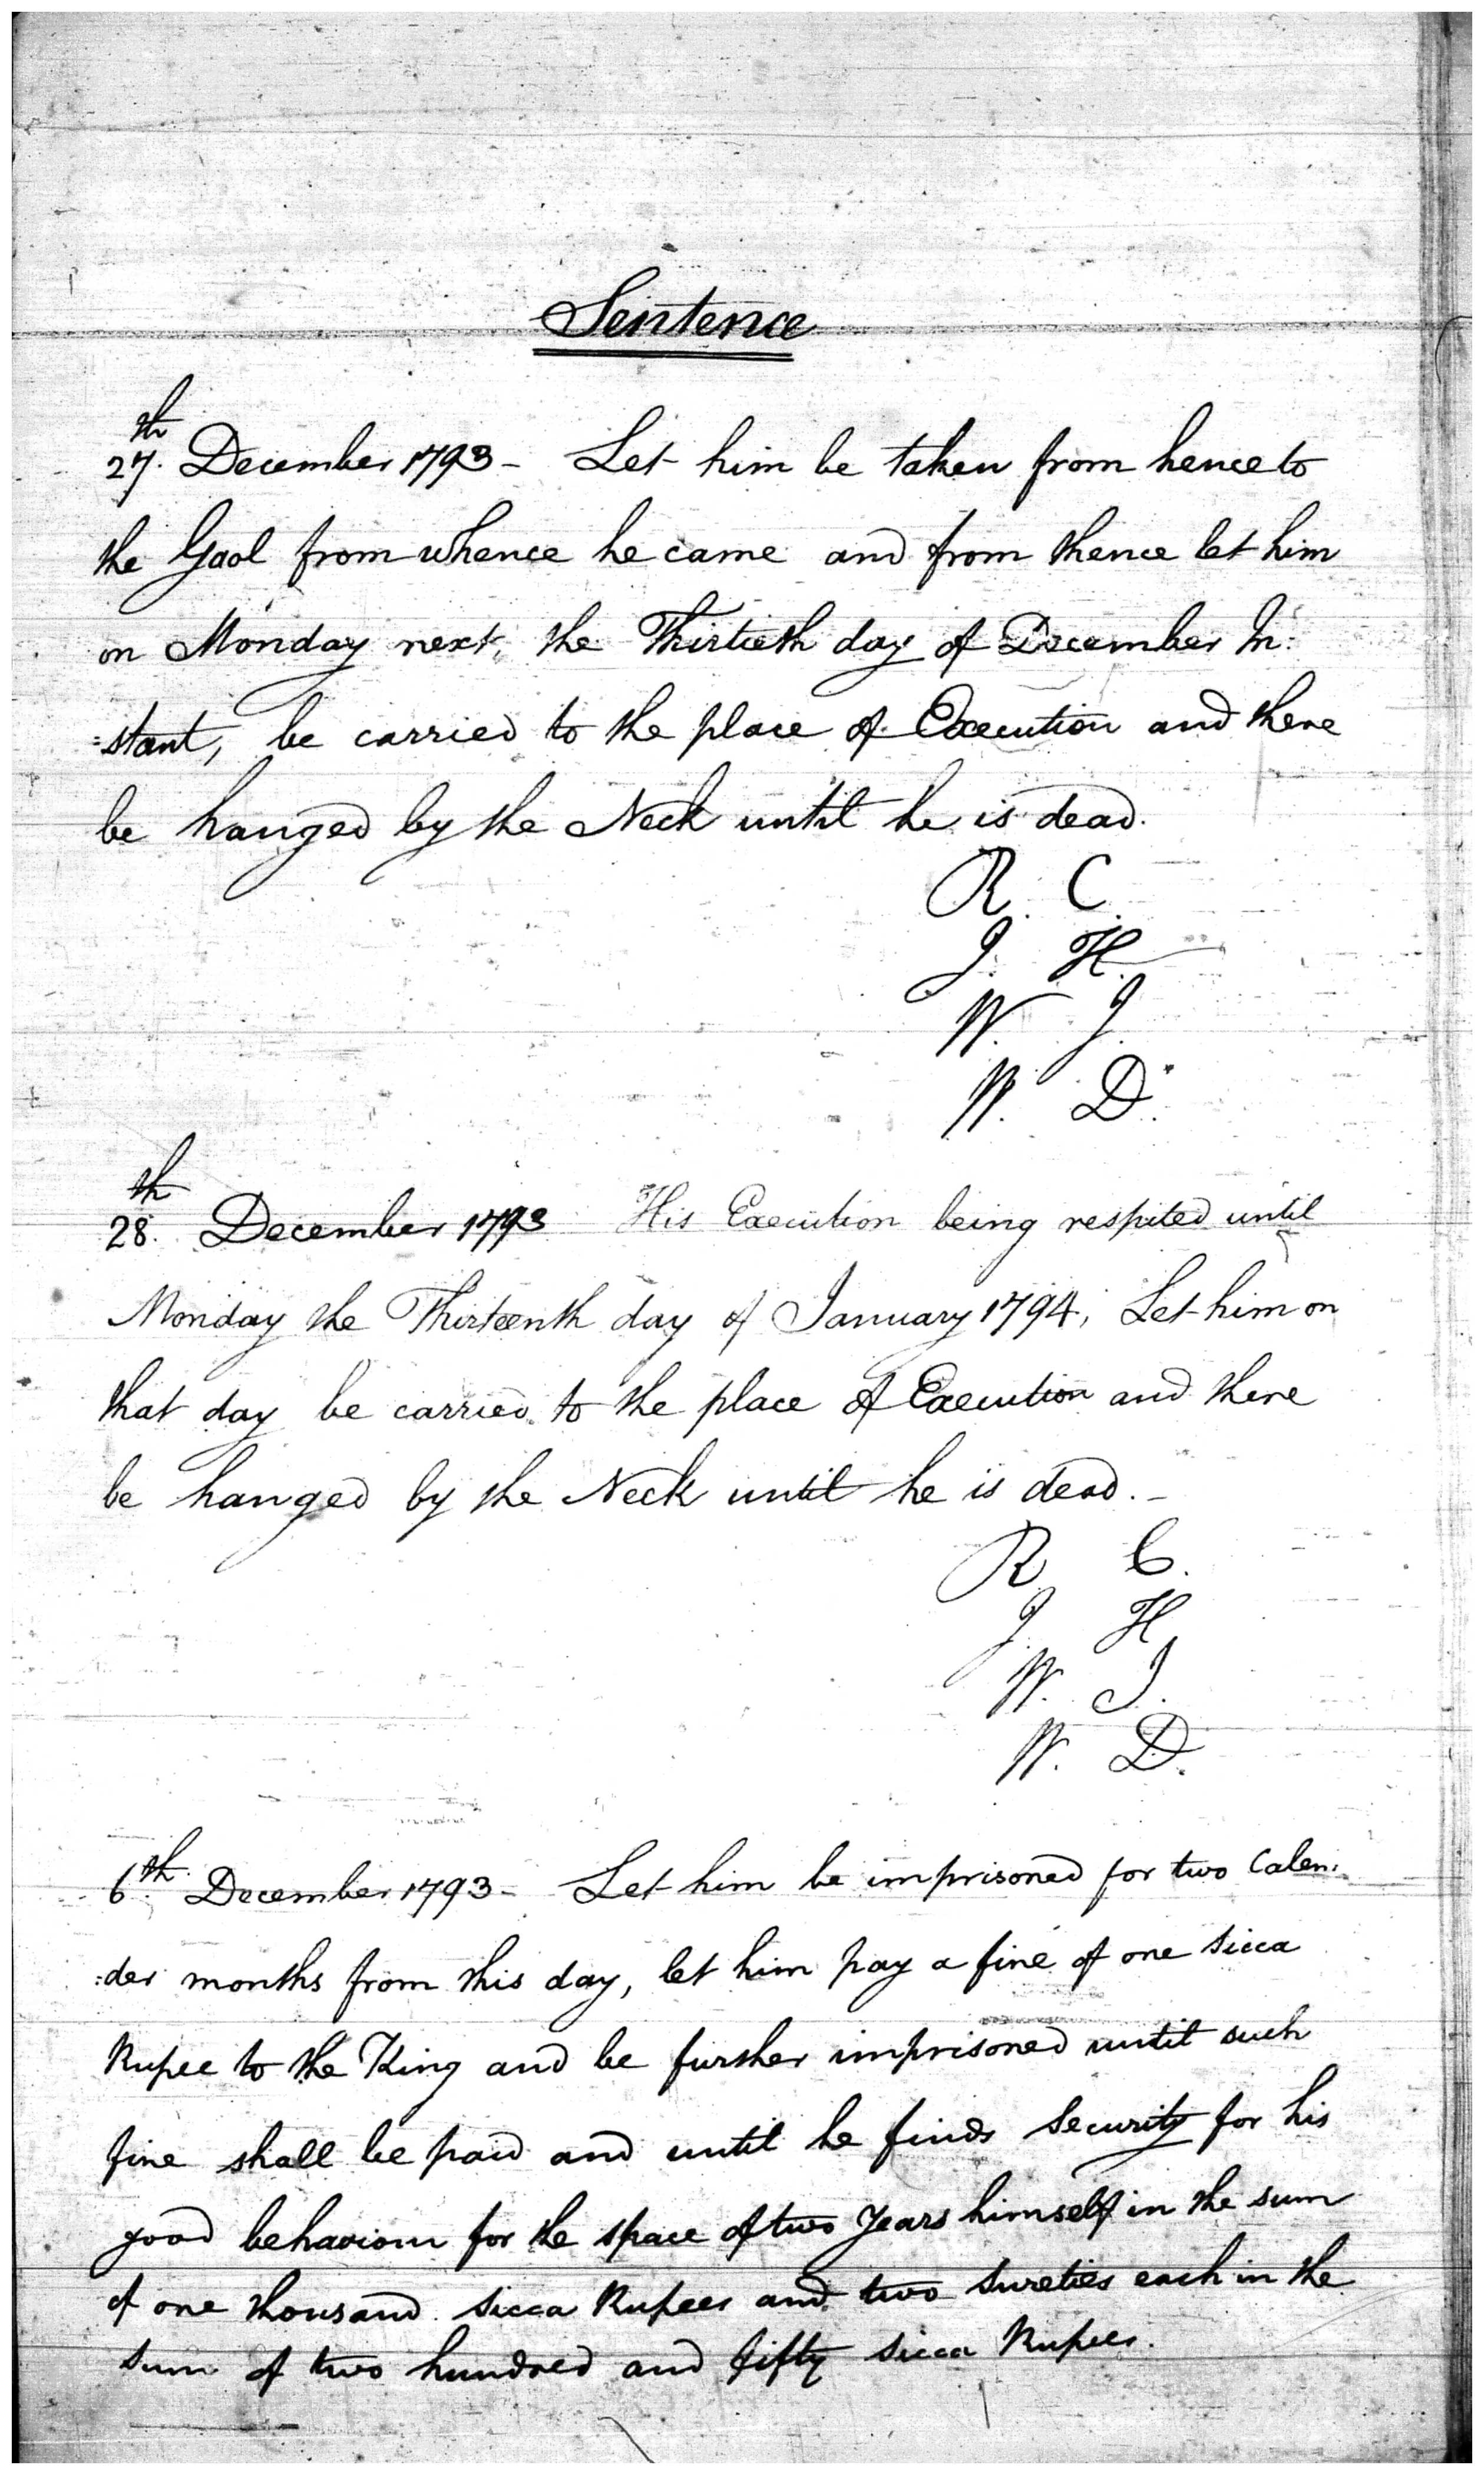 Sentence
27th. December 1793 - Let him be taken from hence to
the Gaol from whence he came and from thence let him
on Monday next, the Thirtieth day of December In:
:stant, be carried to the place of Execution and there
be hanged by the Neck until he is dead.
R. C.
J. H.
W. J.
W. D.
28th. December 1793 His Execution being respited until
Monday the Thirteenth day of January 1794, Let him on
that day be carried to the place of Execution and there
be hanged by the Neck until he is dead. -
R C.
J H
W. J.
W. D.
6th. December 1793 - Let him be imprisoned for two Calen:
:der months from this day, let him pay a fine of one Sicca
Rupee to the King and be further imprisoned until such
fine shall be paid and until he finds Security for his
good behaviour for the space of two Years himself in the sum
of one thousand Sicca Rupees and two Sureties each in the
Sum of two hundred and fifty Sicca Rupees.